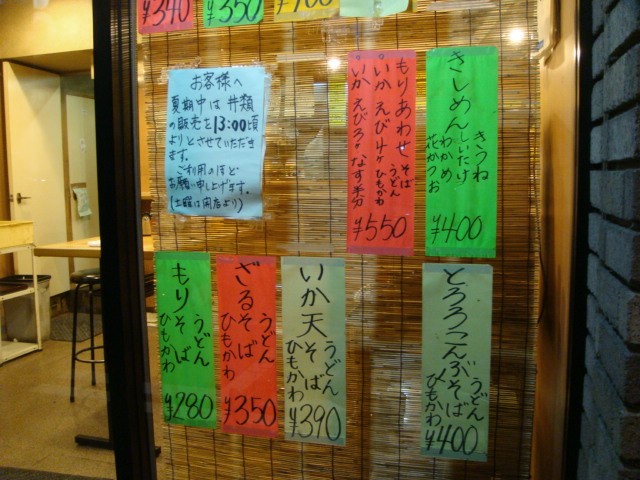 ¥340
¥350
¥700
お客様へ
夏期中は丼類
の販売を13:00頃
よりとさせていただき
ます。
ご利用のほど
お願い申し上げます。
(土曜は開店より)
もりあわせ そば うどん ひもかわ
いか えび1ヶ
いか えび2ヶ なす半分
¥550
きしめん
きつね
しいたけ
わかめ
花かつお
¥400
もりそば
うどん
ひもかわ
¥280
ざるそば
うどん
ひもかわ
¥350
いか天そば
うどん
ひもかわ
¥390
とろろこんぶそば
うどん
ひもかわ
¥400